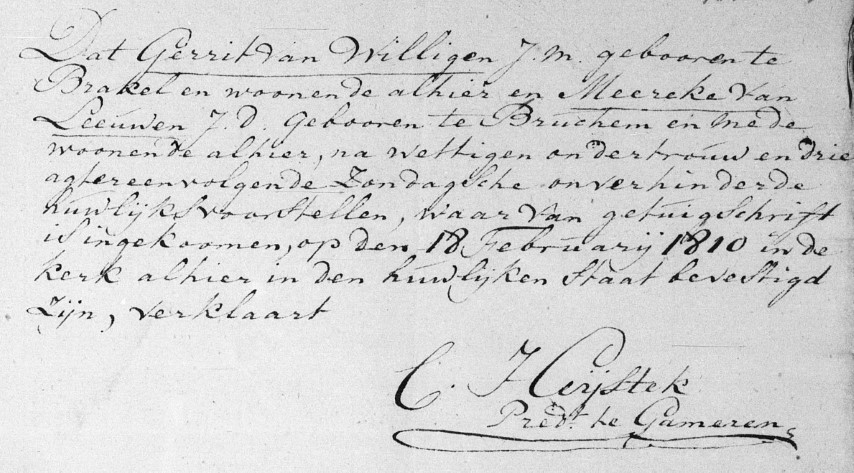 Dat Gerrit van Willigen J.m. gebooren te
Brakel en woonende alhier en Meereke van
Leeuwen J.D gebooren te Bruchem en mede
woonende alhier, na wettigen ondertrouw en drie
agtereenvolgende Zondagsche onverhinderde
huwlijksvoorstellen, waar van getuigschrift
is ingekoomen, op den 18 Februarij 1810 in de
kerk alhier in den huwlijken Staat bevestigd
Zijn, verklaart
C. Heijstek
Predt. te Gameren